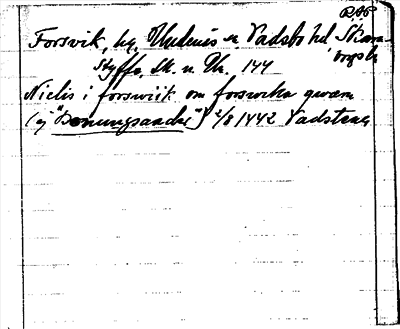 RAP
Forsvik, hg, Undenäs sn Vadsbo hd. Skara-
borgs l.
Styffe, Sk. u. Un. 144
Nielis i forswiik om forswika qwarn
(ej "Bonungsaadal") 2/8 1442 Vadstena